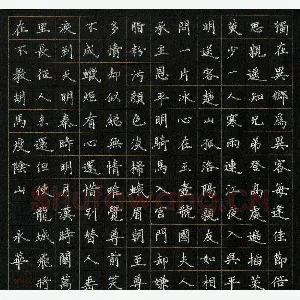 獨在異鄉為異客每逢佳節倍
思親遙知兄弟登高處遍插茱
萸少一人寒雨連江夜入吳平
明送客楚山孤洛陽親友如相
問一片冰心在玉壺虢國夫人
承主恩平明騎馬入宮門卻嫌
脂粉污顏色淡掃蛾眉朝至尊
多情卻似總無情唯覺尊前笑
不成蠟燭有心還惜別替人垂
淚到天明秦時明月漢時關萬
里長征人未還但使龍城飛將
在不教胡馬度陰山 永華